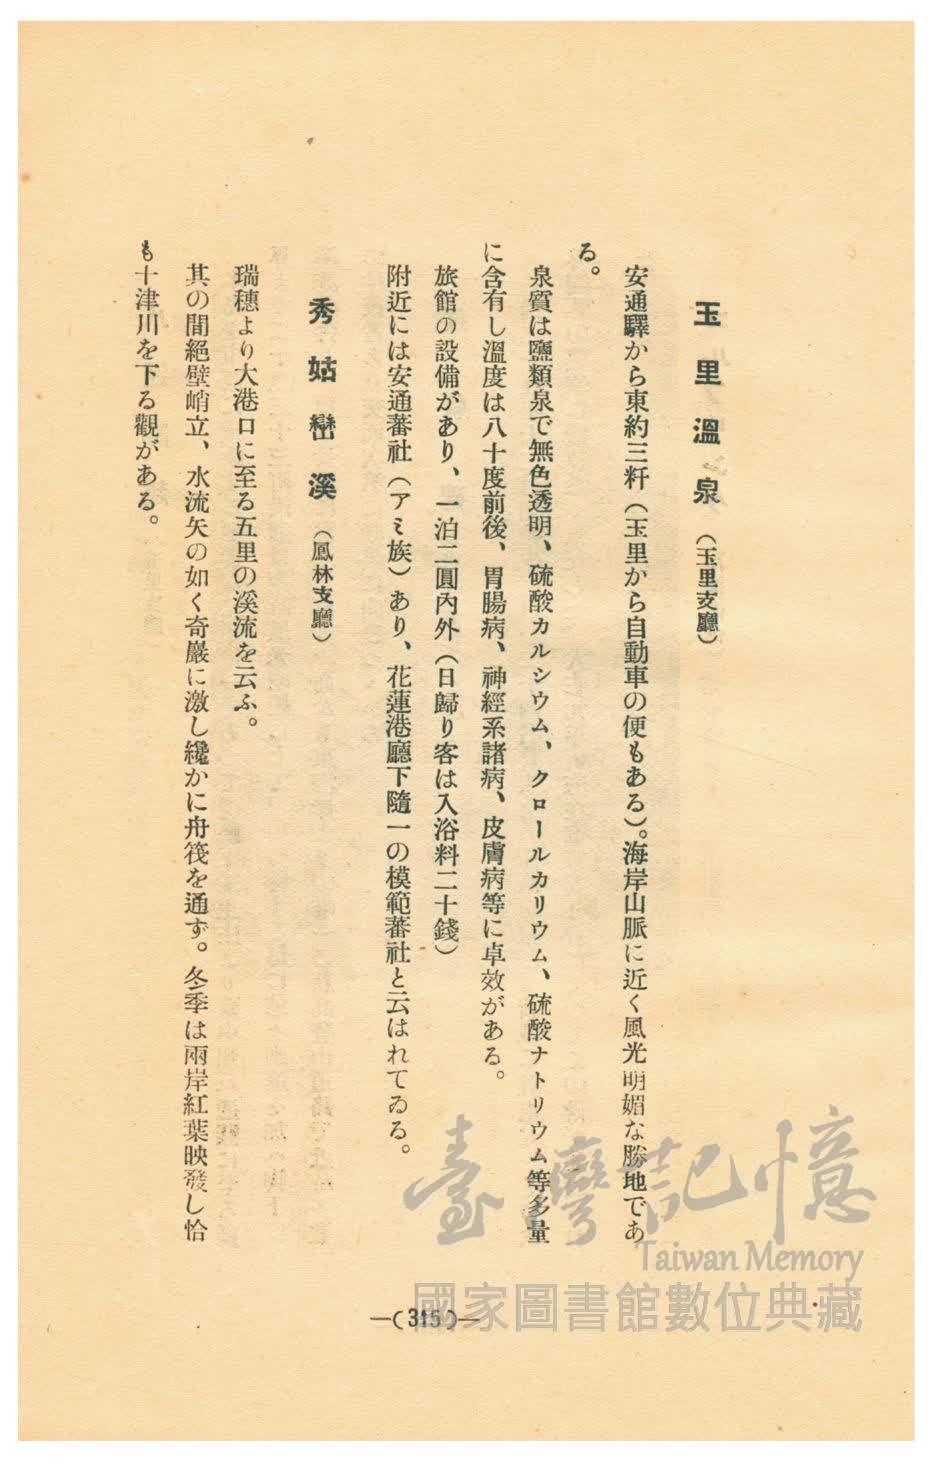 玉里溫泉（玉里支廳）
安通驛から東約三粁（玉里から自動車の便もある）。海岸山脈に近く風光明媚な勝地であ
る。
泉質は鹽類泉で無色透明、硫酸カルシウム、クロールカリウム、硫酸ナトリウム等多量
に含有し溫度は八十度前後、胃腸病、神經系諸病、皮膚病等に卓效がある。
旅館の設備があり、一泊二圓內外（日歸り客は入浴料二十錢）
附近には安通蕃社（アミ族）あり、花蓮港廳下隨一の模範蕃社と云はれてゐる。
秀姑巒溪（鳳林支廳）
瑞穗より大港口に至る五里の溪流を云ふ。
其の間絕壁峭立、水流矢の如く奇巖に激し纔かに舟筏を通ず。冬季は兩岸紅葉映發し恰
も十津川を下る觀がある。
—（315）—
臺灣記憶
Taiwan Memory
國家圖書館數位典藏